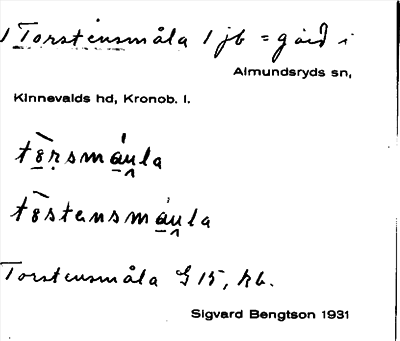 1 Torstensmåla 1 jb = gård i
Almundsryds sn,
Kinnevalds hd, Kronob. l.
tørsmåula
tøstensmåula
Torstensmåla G 15, kb.
Sigvard Bengtson 1931